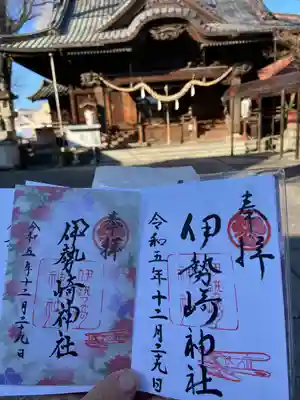 奉拝
伊勢崎神社
令和五年十二月二九日
奉拝
伊勢崎神社
令和五年十二月二九日